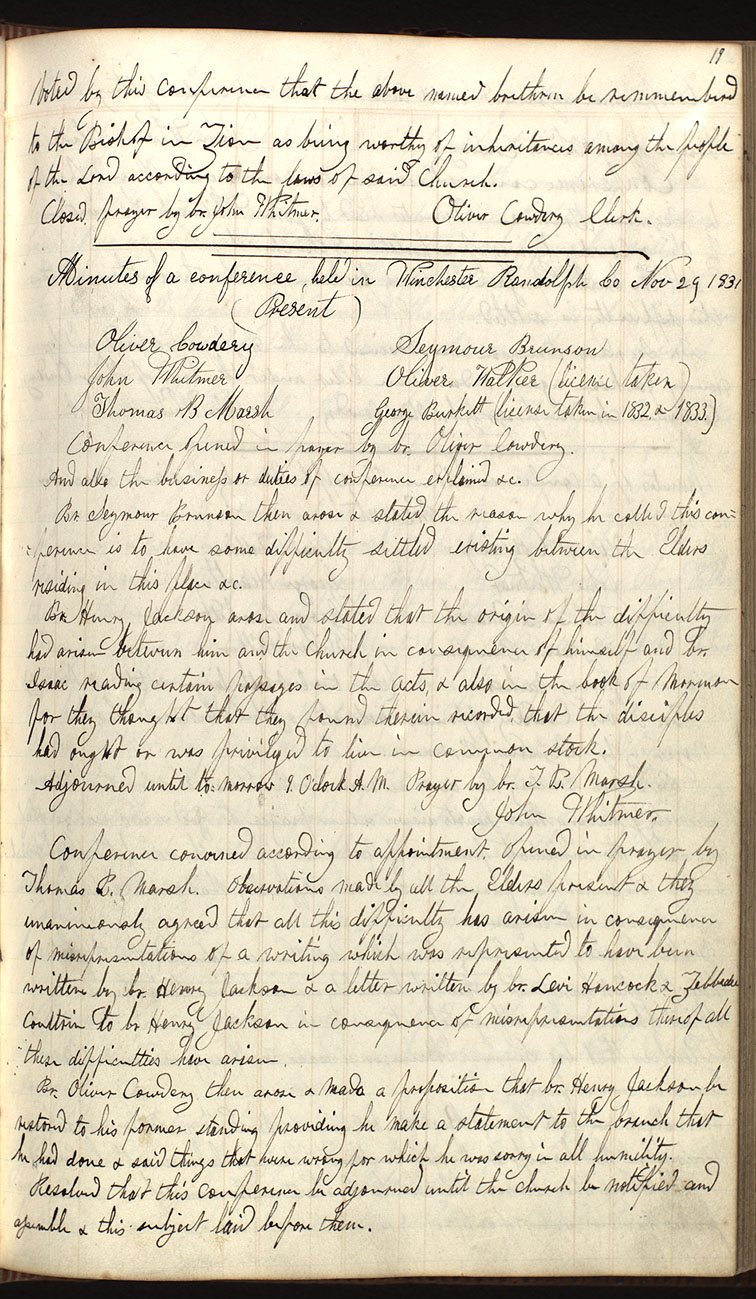 19
Voted by this conference that the above named brethren be remmembered
to the Bishop in Zion as being worthy of inheritances among the people
of the Lord according to the laws of said Church.
Closed prayer by br. John Whitmer. Oliver Cowdery Clerk.
Minutes of a conference, held in Winchester Randolph Co Nov 29 1831
(Present)
Oliver Cowdery Seymour Brunson
John Whitmer Oliver Walker (licence taken)
Thomas B Marsh George Burkett (license taken in 1832 & 1833.)
Conference opened in prayer by br. Oliver Cowdery.
And also the business or duties of conference explained &c.
Br. Seymour Brunson then arose & stated the reason why he called this con=
=ference is to have some difficulty settled existing between the Elders
residing in this place &c.
Br. Henry Jackson arose and stated that the origin of the difficulty
had arisen between him and the Church in consequence of himself and br.
Isaac reading certain passages in the acts, & also in the book of Mormon
for they thought that they found therein recorded, that the disciples
had ought or was privileged to live in common stock.
Adjourned until to-morrow 9. Oclock A. M. Prayer by br. T. B. Marsh.
John Whitmer.
Conference convened according to appointment. opened in prayer by
Thomas B. Marsh. Observations made by all the Elders present & they
unanimously agreed that all this difficulty has arisen in consequence
of misrepresentations of a writing which was represented to have been
written by br. Henry Jackson & a letter written by br. Levi Hancock & Zebbedee
Coultrin to br Henry Jackson in consequence of misrepresentations thereof all
these difficulties have arisen.
Br. Oliver Cowdery then arose & made a proposition that br. Henry Jackson be
restored to his former standing providing he make a statement to the branch that
he had done & said things that were wrong for which he was sorry in all humility.
Resolved that this conference be adjourned until the church be notified and
assemble & this subject laid before them.